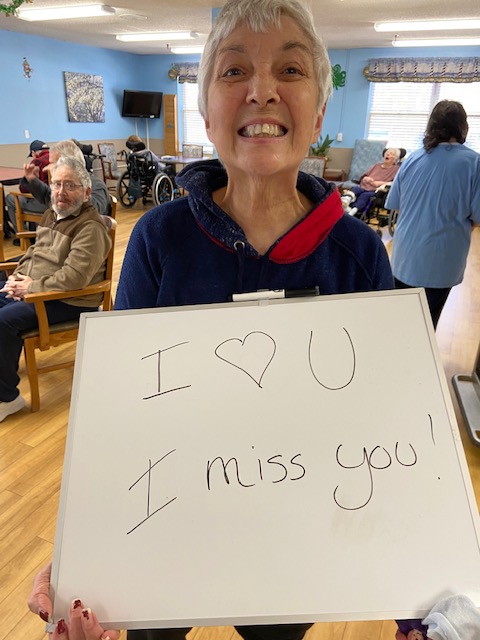 I ♡ U
I miss you!